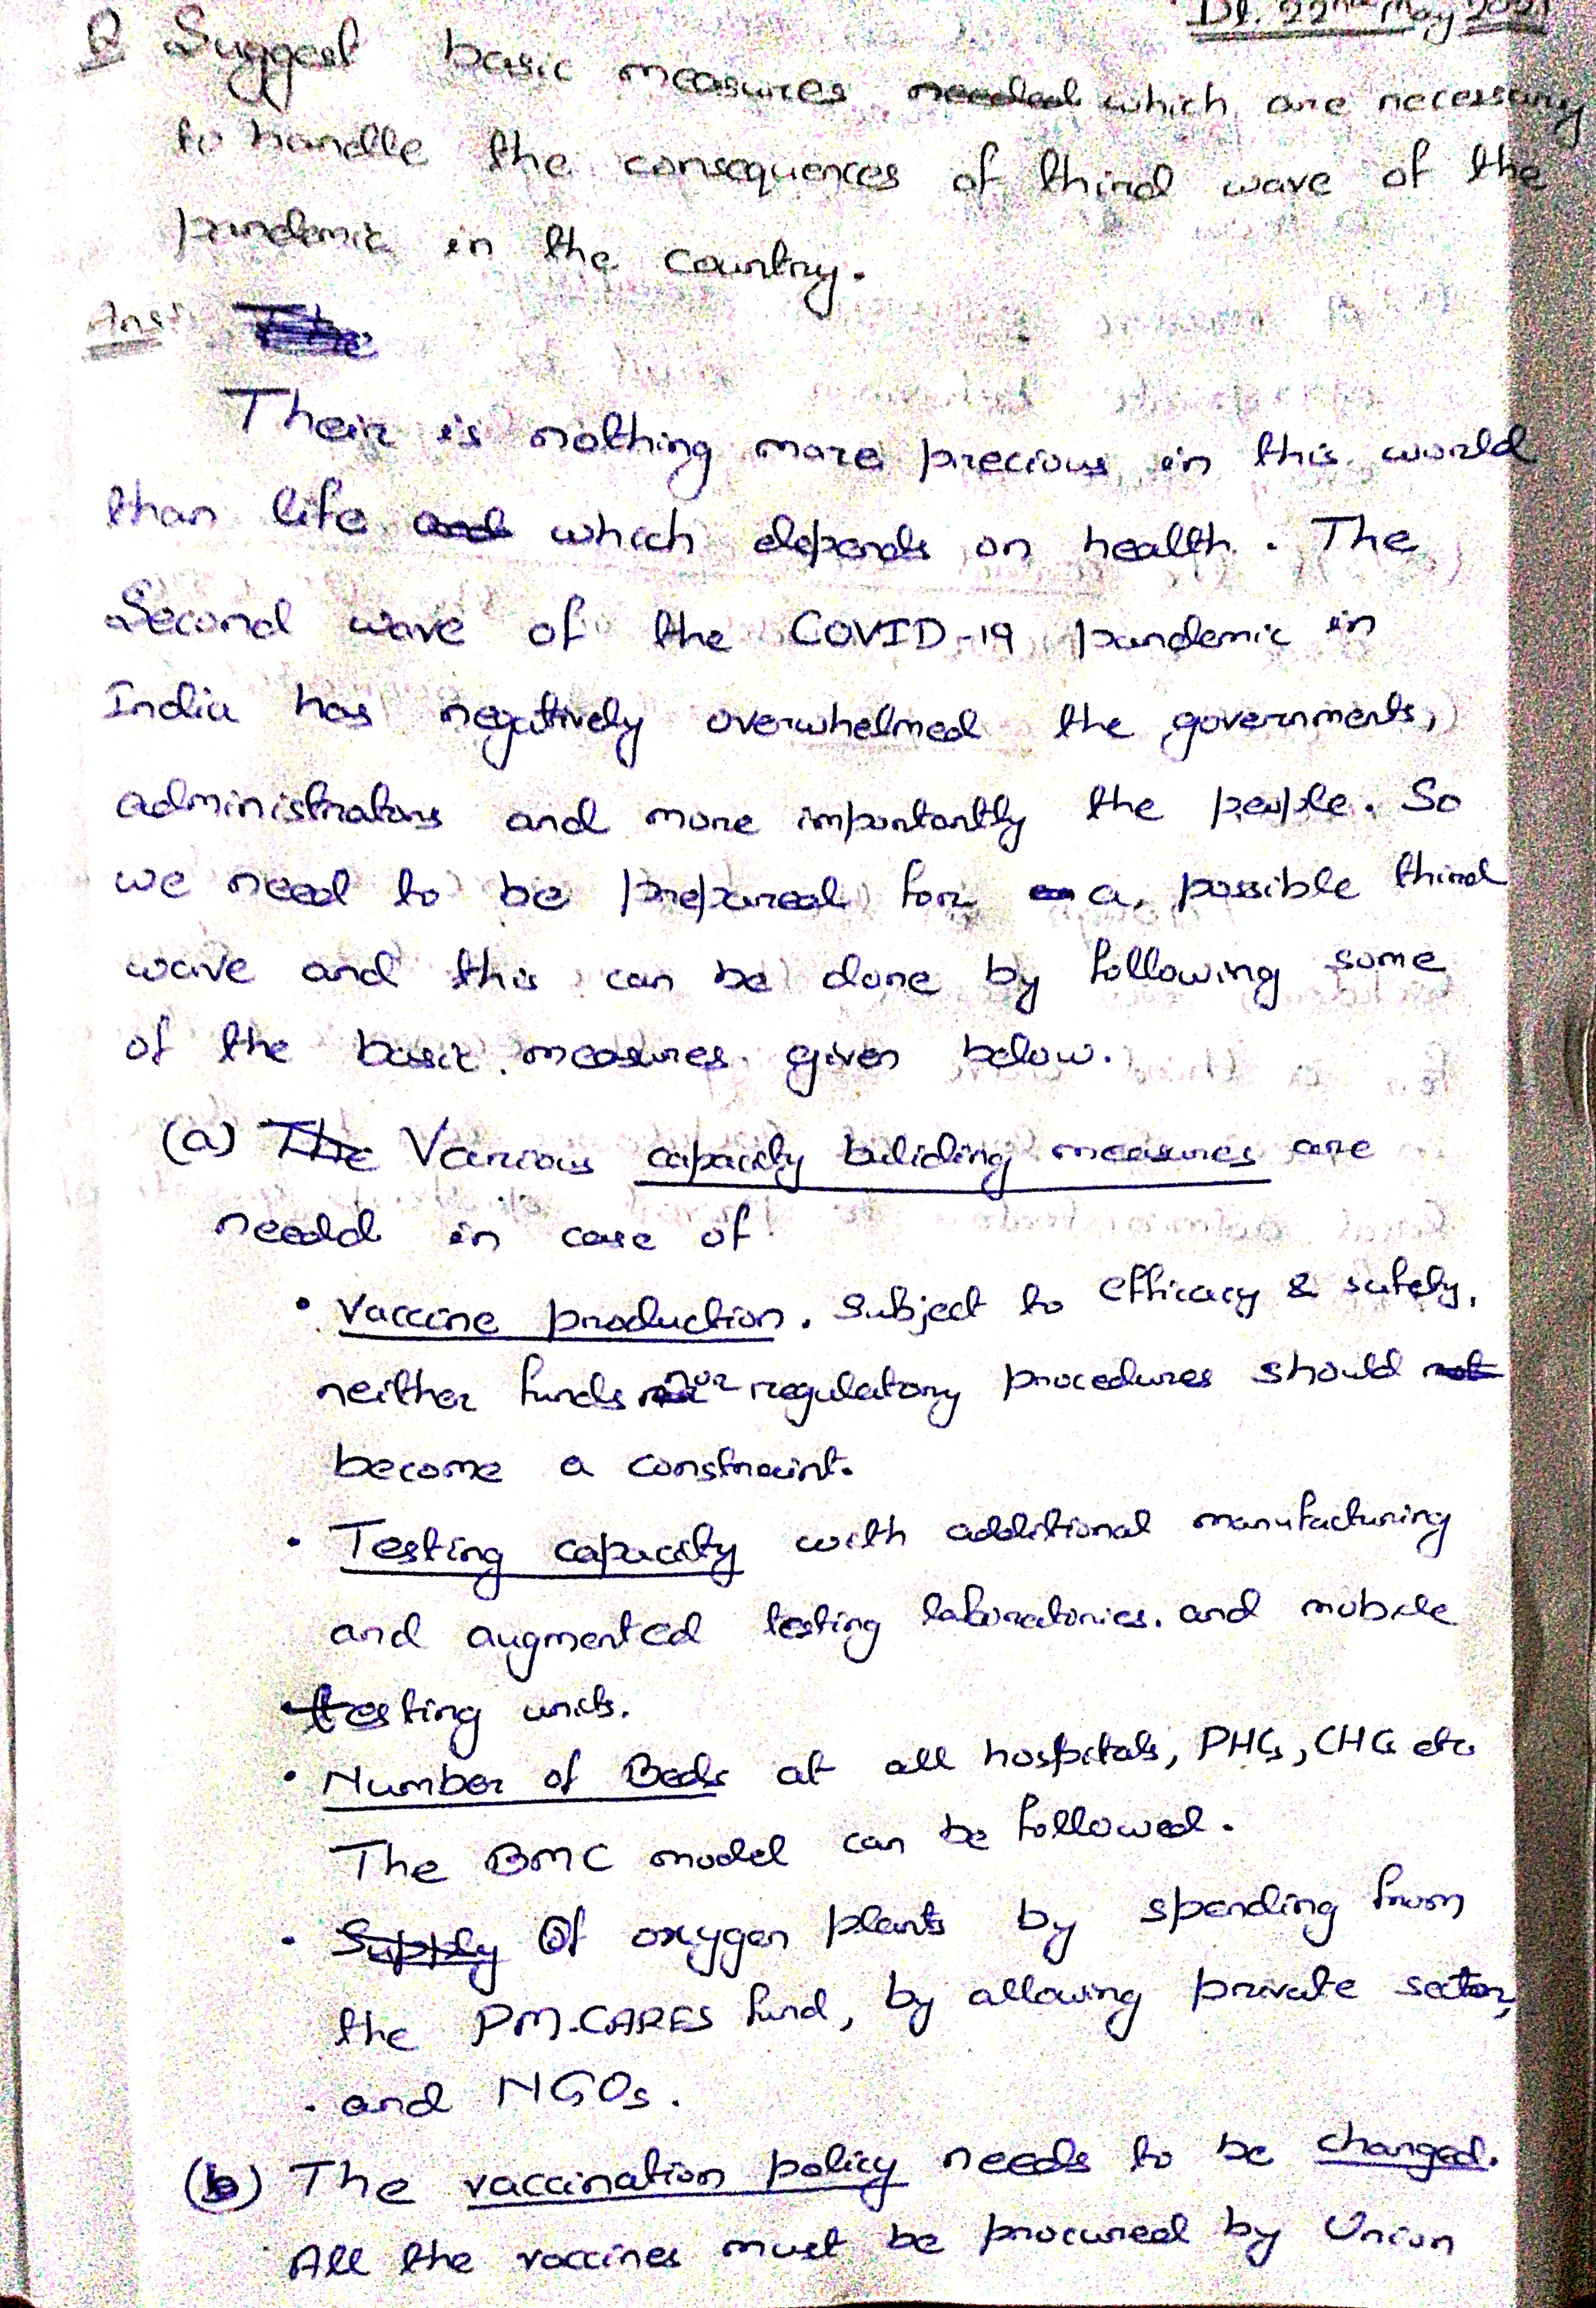 Dt. 22nd May 2021
Q Suggest basic measures needed which are necessary
to handle the consequences of third wave of the
pandemic in the country.
Ans: The
Their is nothing more precious in this world
than life and which depends on health. The
Second wave of the COVID-19 pandemic in
India has negatively overwhelmed the governments,
administrators and more importantly the people. So
we need to be prepared for a possible third
wave and this can be done by following some
of the basic measures given below.
(a) The Various capacity buliding measures are
needd in case of
• Vaccine production. Subject to efficacy & safety,
neither funds nor regulatory procedures should not
become a constraint.
• Testing capacity with additional manufacturing
and augmented testing laboratories. and mobile
testing units.
• Number of Beds at all hospitals, PHCs, CHCs etc
The BMC model can be followed.
• Supply Of oxygen plants by spending from
the PM-CARES fund, by allowing private sector,
. and NGOs.
(b) The vaccination policy needs to be changed.
All the vaccines must be procured by Union